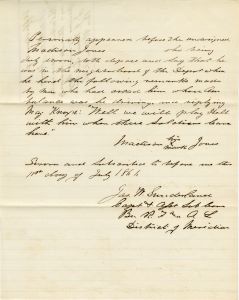 Personally appeared before the undersigned
Madison Jones who being
duly sworn, doth depose and say that he
was in the neighborhood of the Depot when
he heard the following remarks made
by men who had asked him where the
ambulance was he driving was replying
May Knox: "Well we will play Hell
with him when these Soldiers leave
here"
Madison his mark Jones
Sworn and subscribed to before me this
11th day of July 1866
Jas W Sunderland
Capt & Sub Com
Bu R F & A L
District of Meridian